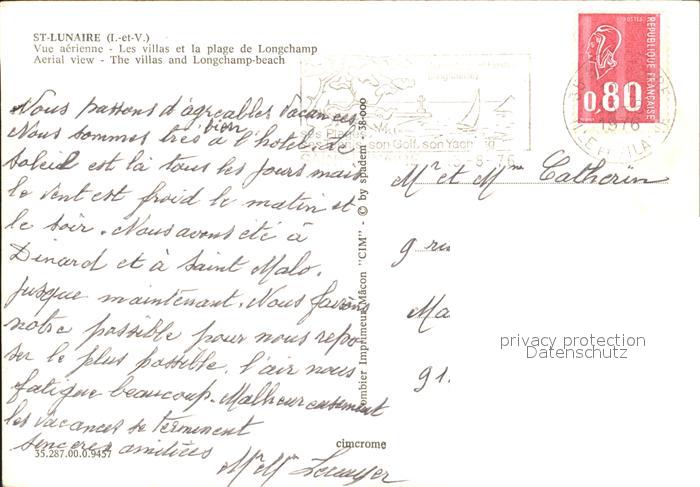 ST-LUNAIRE (I.-et-V.)
Vue aérienne - Les villas et la plage de Longchamp
Aerial view - The villas and Longchamp-beach
REPUBLIQUE FRANÇAISE
POSTES
0,80
1976
son Golf, son Yachting
Nous passons d'agréables vacances.
Nous sommes très bien à l'hotel. le
soleil est là tous les jours mais
le vent est froid le matin et
le soir. Nous avons été à
Dinard et à Saint Malo.
jusque maintenant. Nous faisons
notre possible pour nous repo-
ser le plus possible. l'air nous
fatigue beaucoup. Malheureusement
les vacances se terminent
sinceres amitiées
Mr Mme
Mr et Mme Catherin
9 rue
Ma
91.
privacy protection
Datenschutz
Combier Imprimeur Mâcon "CIM" - © by spadem - 38-000
cimcrome
35.287.00.0.9457